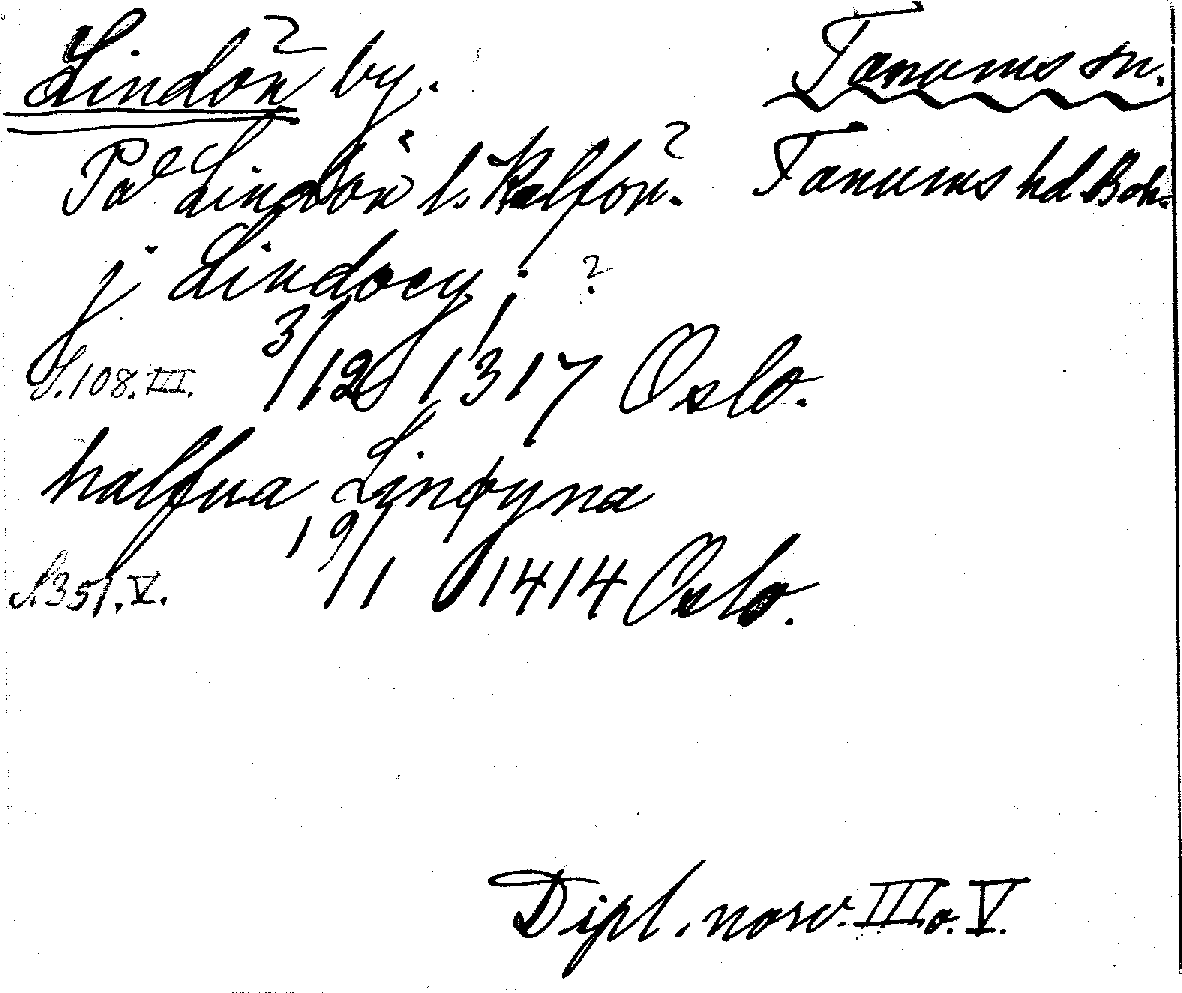 Lindön ? by. Tanums sn.
På Lindön l. Kalfön. ? Tanums hd. Boh.
j Lindoey ; ?
S. 108. III. 3/12 1317 Oslo.
halfua Lindyna
S. 351. V. 19/1 1414 Oslo.
Dipl. norv. III o. V.